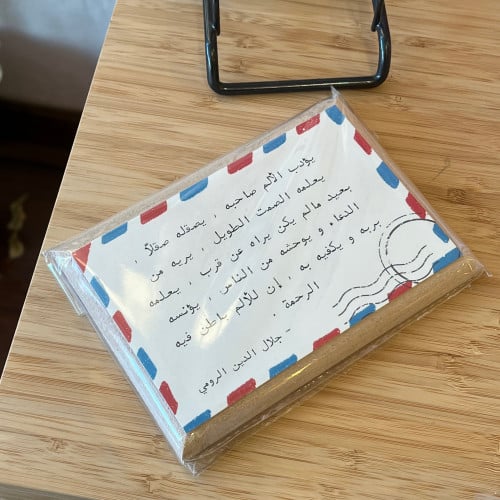 يؤدب الألم صاحبه ، يصقله صقلاً ،
يعلمه الصمت الطويل ، يريه من
بعيد مالم يكن يراه عن قرب ، يعلمه
الدعاء و يوحشه من الناس ، يؤنسه
بربه و يكفيه به ، إن للألم باطن فيه
الرحمة .
- جلال الدين الرومي